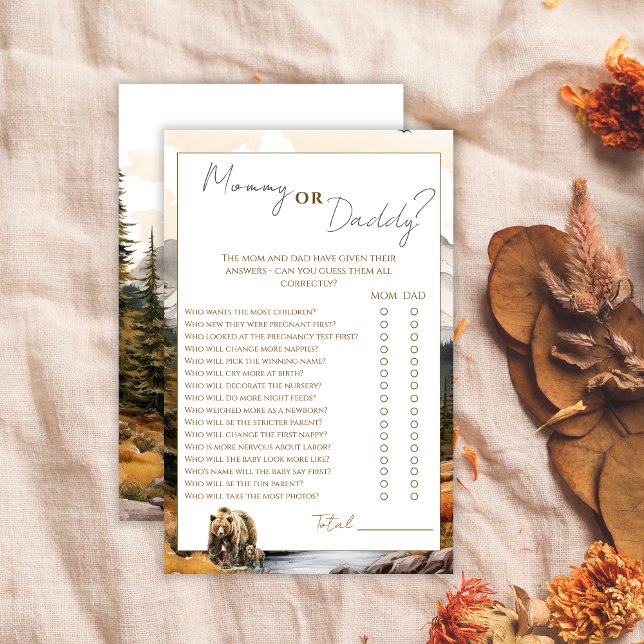 Mommy
OR
Daddy?
The mom and dad have given their
answers - can you guess them all
correctly?
MOM DAD
Who wants the most children?
Who new they were pregnant first?
Who looked at the pregnancy test first?
Who will change more nappies?
Who will pick the winning name?
Who will cry more at birth?
Who will decorate the nursery?
Who will do more night feeds?
Who weighed more as a newborn?
Who will be the stricter parent?
Who will change the first nappy?
Who is more nervous about labor?
Who will the baby look more like?
Who's name will the baby say first?
Who will be the fun parent?
Who will take the most photos?
Total